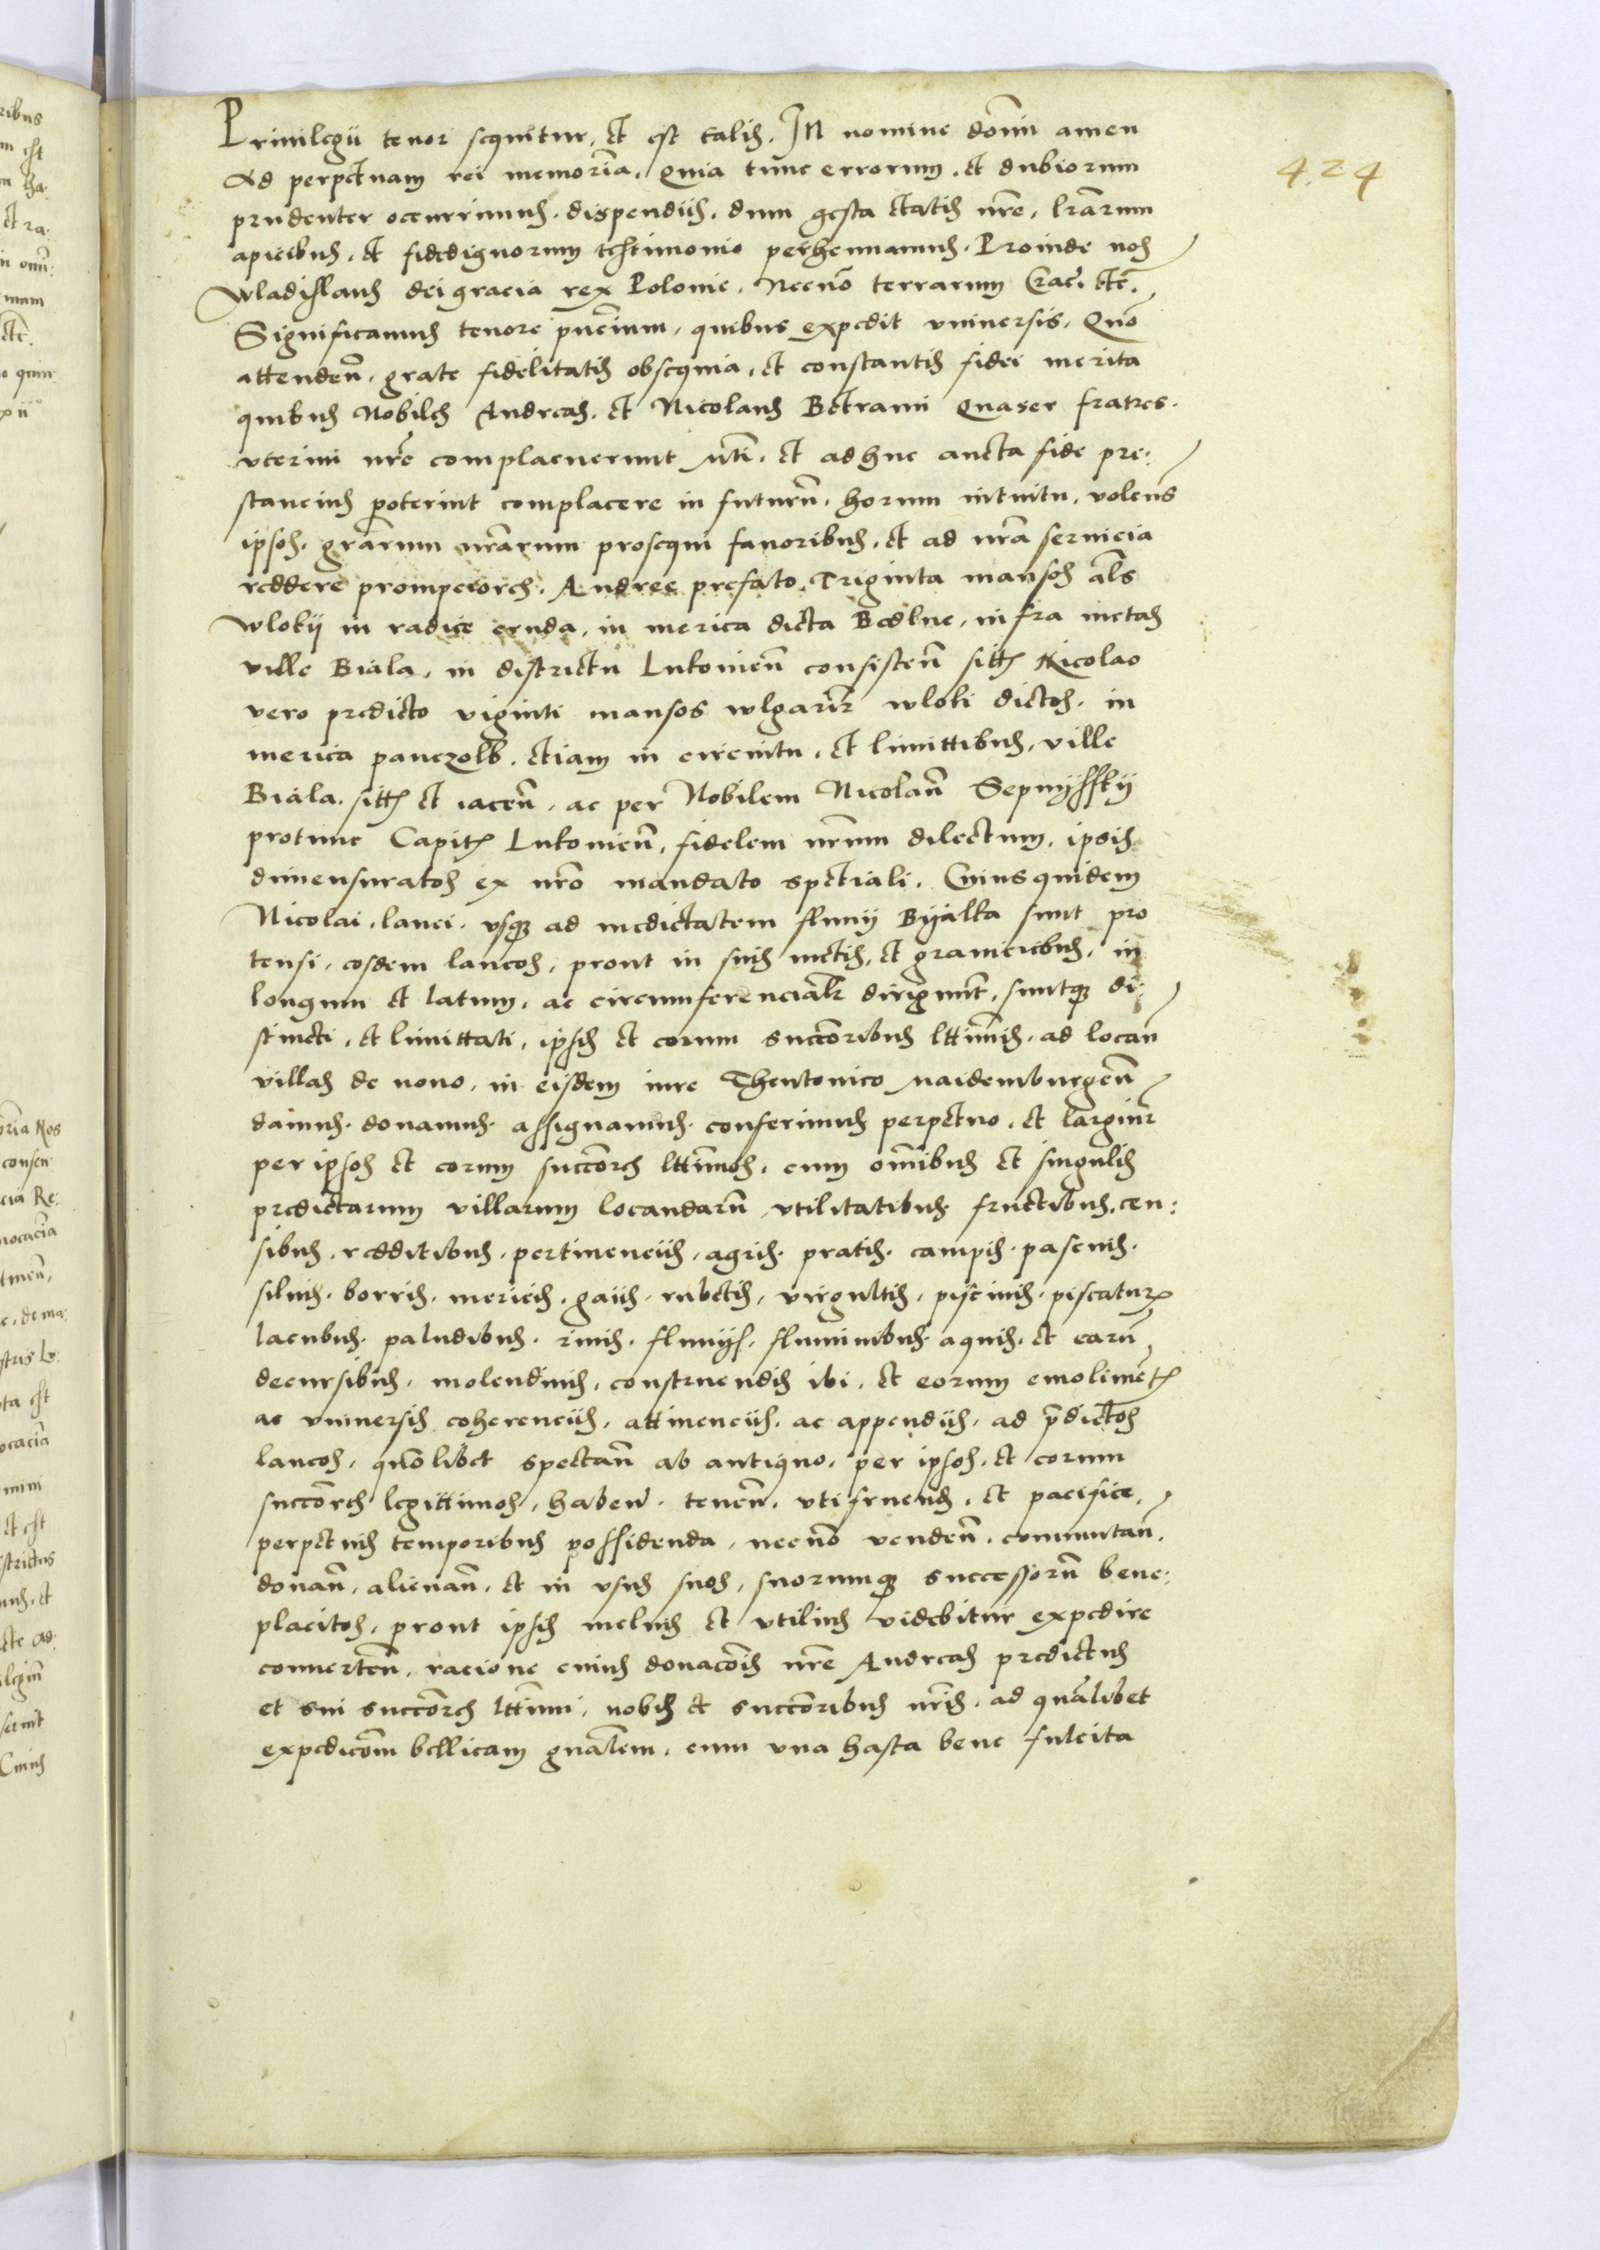 424
Priuilegii tenor sequitur, et est talis. In nomine domi amen
Ad perpetuam rei memoria, Quia tunc errorum, et dubiorum
prudenter occurrimus dispendiis, dum gesta etatis nre, lrarum
apicibus, et fidedignorum testimonio perhennamus. Proinde nos
Wladislaus dei gracia rex Polonie, Necno terrarum Crac. etc.
Significamus tenore pncium, quibus expedit vniuersis, Quo
attenden, grate fidelitatis obsequia, et constantis fidei merita
quibus Nobiles Andreas, et Nicolaus Betrami Quaser fratres
vterini nre complacuerunt mti, et adhuc aucta fide pre:
stancius poterint complacere in futurn, horum intuitu, volens
ipsos, grarum nrarum prosequi fauoribus, et ad nra seruicia
reddere prompciores, Andree prefato, Triginta mansos als
wloky in radice cruda, in merica dicta Bedlne, infra metas
ville Biala, in districtu Lukouien consisten sitt Nicolao
vero predicto viginti mansos wlgarr wloki dictos, in
merica panczolb, etiam in circuitu, et limittibus, ville
Biala, sitt et iacen, ac per Nobilem Nicolau Sepmyssky
protunc Capit Lukouien, fidelem nrum dilectum, ipsis
dimensuratos ex nro mandato speciali, Cuius quidem
Nicolai, lanei, vsq ad medietatem fluuy Byalka sunt pro
tensi, eosdem laneos, prout in suis metis, et graniciebus, in
longum et latum, ac circumferencialr dirigunt, suntq di:
stincti, et limittati, ipsis et eorum succoribus lttimis, ad locan
villas de nouo, in eisdem iure Theutonico maidemburgen
damus, donamus, assignamus, conferimus perpetuo, et largimr
per ipsos et eorum succores lttimos, cum omibus et singulis
predictarum villarum locandaru vtilitatibus, fructibus, cen:
sibus, redditibus, pertinenciis, agris, pratis, campis, pascuis,
siluis, borris, mericis, gaiis, rubetis, virgultis, piscinis, piscatur
lacubus, paludibus, riuis, fluuys, fluminibus, aquis, et earu
decursibus, molendinis, construendis ibi, et eorum emolimet
ac vniuersis coherenciis, attinenciis, ac appendiis, ad pdictos
laneos, quolibet spectan ab antiquo, per ipsos, et eorum
succores legittimos, haben, tenen, vti fruend, et pacifice,
perpetuis temporibus possidenda, necno venden, commutan,
donan, alienan, et in vsus suos, suorumq successoru bene:
placitos, prout ipsis melius et vtilius videbitur expedire
conuerten, racione cuius donacois nre Andreas predictus
et sui succores lttimi, nobis et succoribus nris, ad qualibet
expedicom bellicam gnalem, cum vna hasta bene fulcita